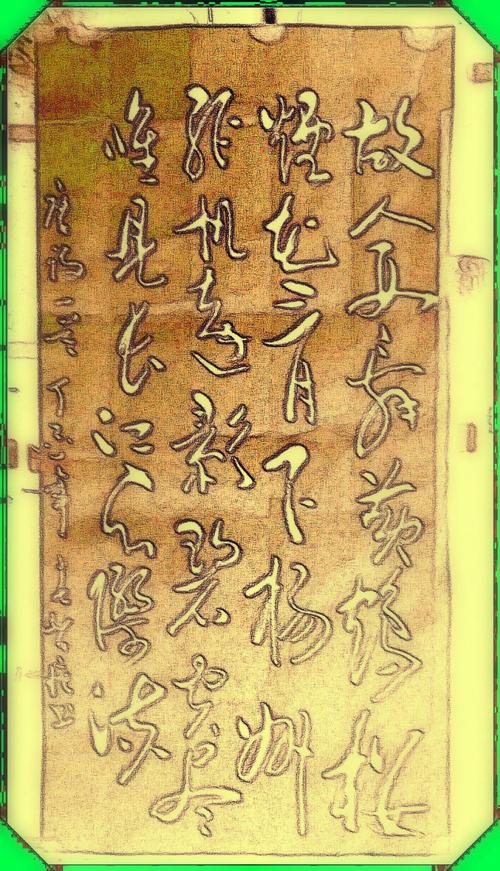 故人西辭黃鶴樓
煙花三月下揚州
孤帆遠影碧空盡
唯見長江天際流
唐詩一首